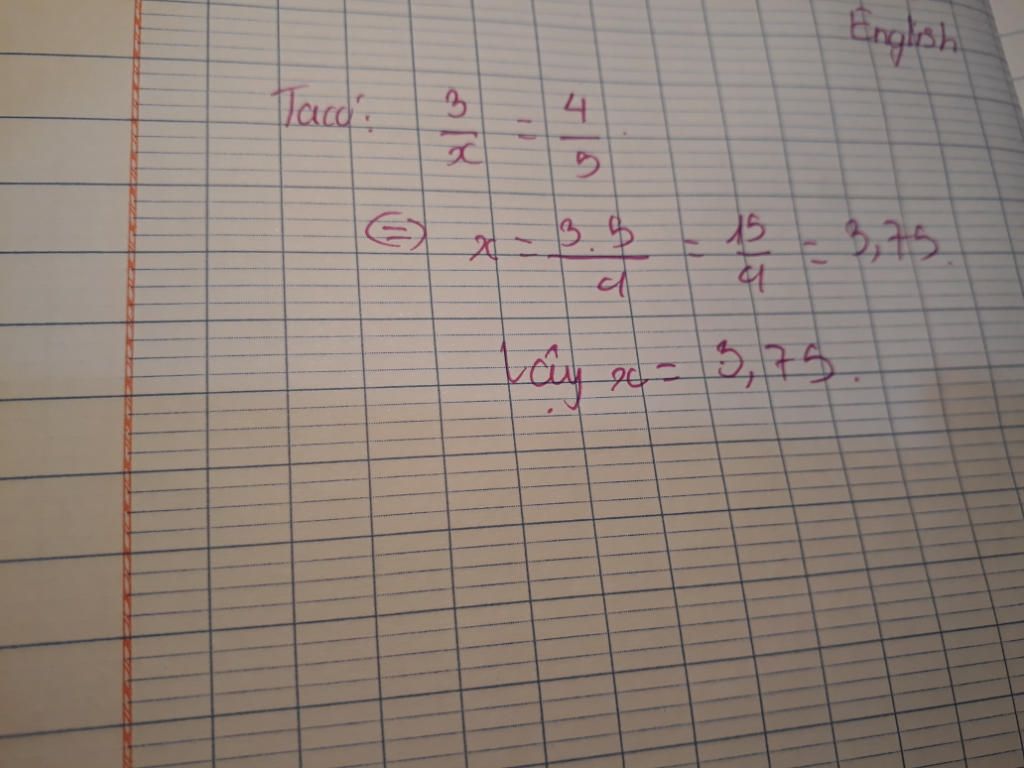 English
Ta có: 3/x = 4/5.
⇔ x = 3.5/4 = 15/4 = 3,75.
Vậy x = 3,75.